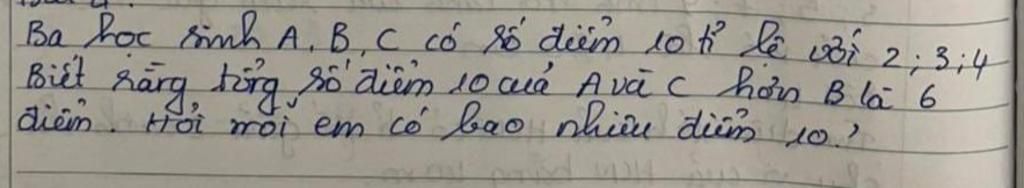 Ba học sinh A, B, C có số điểm 10 tỉ lệ với 2; 3; 4
Biết rằng tổng số điểm 10 của A và C hơn B là 6
điểm. Hỏi mỗi em có bao nhiêu điểm 10?